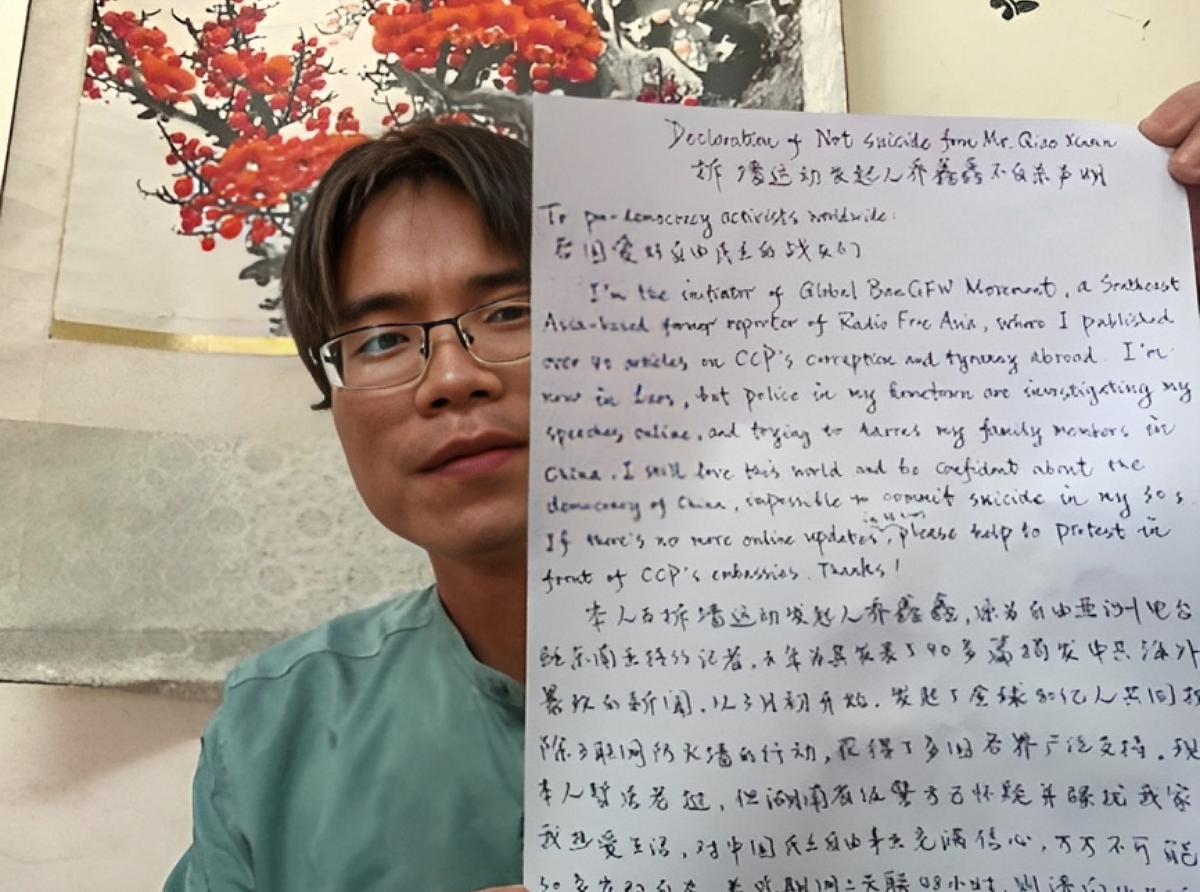 Decloration of Not suicide from Mr. Qiao
拆墙运动发起人乔鑫鑫不自杀声明
To pro-democracy activists worldwide:
各国爱好自由民主的战友们
I'm the initiator of Global BanGFW Movement, a Southeast
Asia-based former reporter of Radio Free Asia, where I published
over 40 articles on CCP's corruption and tyranny abroad. I'm
now in Laos, but police in my hometown are investigating my
speeches online, and trying to harres my family members in
China. I still love this world and be confident about the
democracy of China, impossible to commit suicide in my 30s
If there's no more online updates, please help to protest in
front of CCP's embassies. Thanks!
本人为拆墙运动发起人乔鑫鑫,原为自由亚洲电台
驻东南亚特约记者,发表了40多篇揭发中共海外
的新闻,从3月初开始,发起了全球80亿人共同拆
除互联网防火墙的行动,获得了多国各界广泛支持。现
本人暂居老挝,但湖南省级警方已怀疑并骚扰我家
我热爱生活,对中国民主自由事业充满信心,万万不可能
30多岁